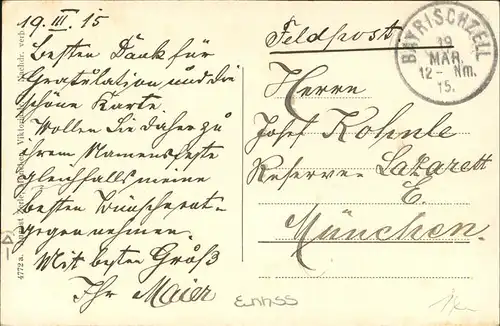 19. III. 15
Besten Dank für
Gratulation und die
schöne Karte.
Wollen Sie daher zu
ihrem Namensfeste
gleichfalls meine
besten Wünsche ent-
gegennehmen.
Mit besten Gruß
Ihr Maier
Feldpost
BAYRISCHZELL
19
MÄR.
12- Nm.
15.
Herrn
Josef Kohnle
Reserve-Lazarett
E.
München.
4772 a.
Viktoria
Nachdr. verb.